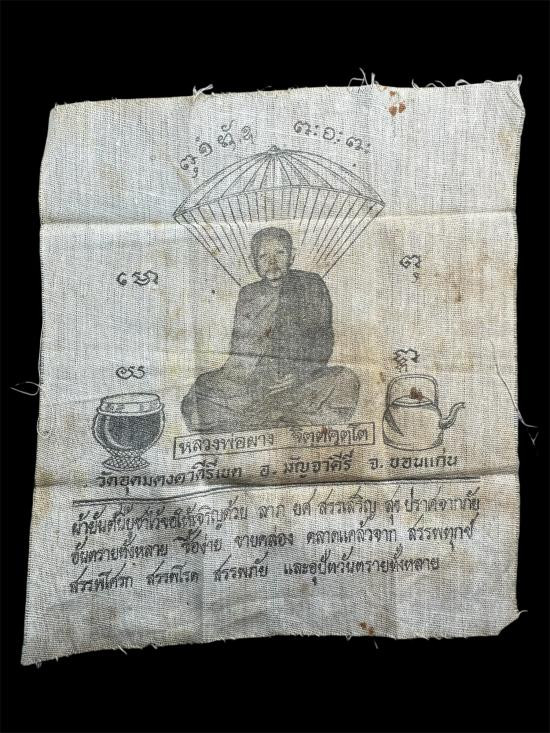 หลวงพ่อผาง จิตตคุตโต
วัดอุดมคงคาคีรีเขต อ. มัญจาคีรี จ. ขอนแก่น
ผ้ายันต์นี้บูชาไว้จะให้เจริญด้วย ลาภ ยศ สรรเสริญ สุข ปราศจากภัย
อันตรายทั้งหลาย ซื้อง่าย ขายคล่อง คลาดแคล้วจาก สรรพทุกข์
สรรพโศรก สรรพโรค สรรพภัย และอุปัทวันตรายทั้งหลาย